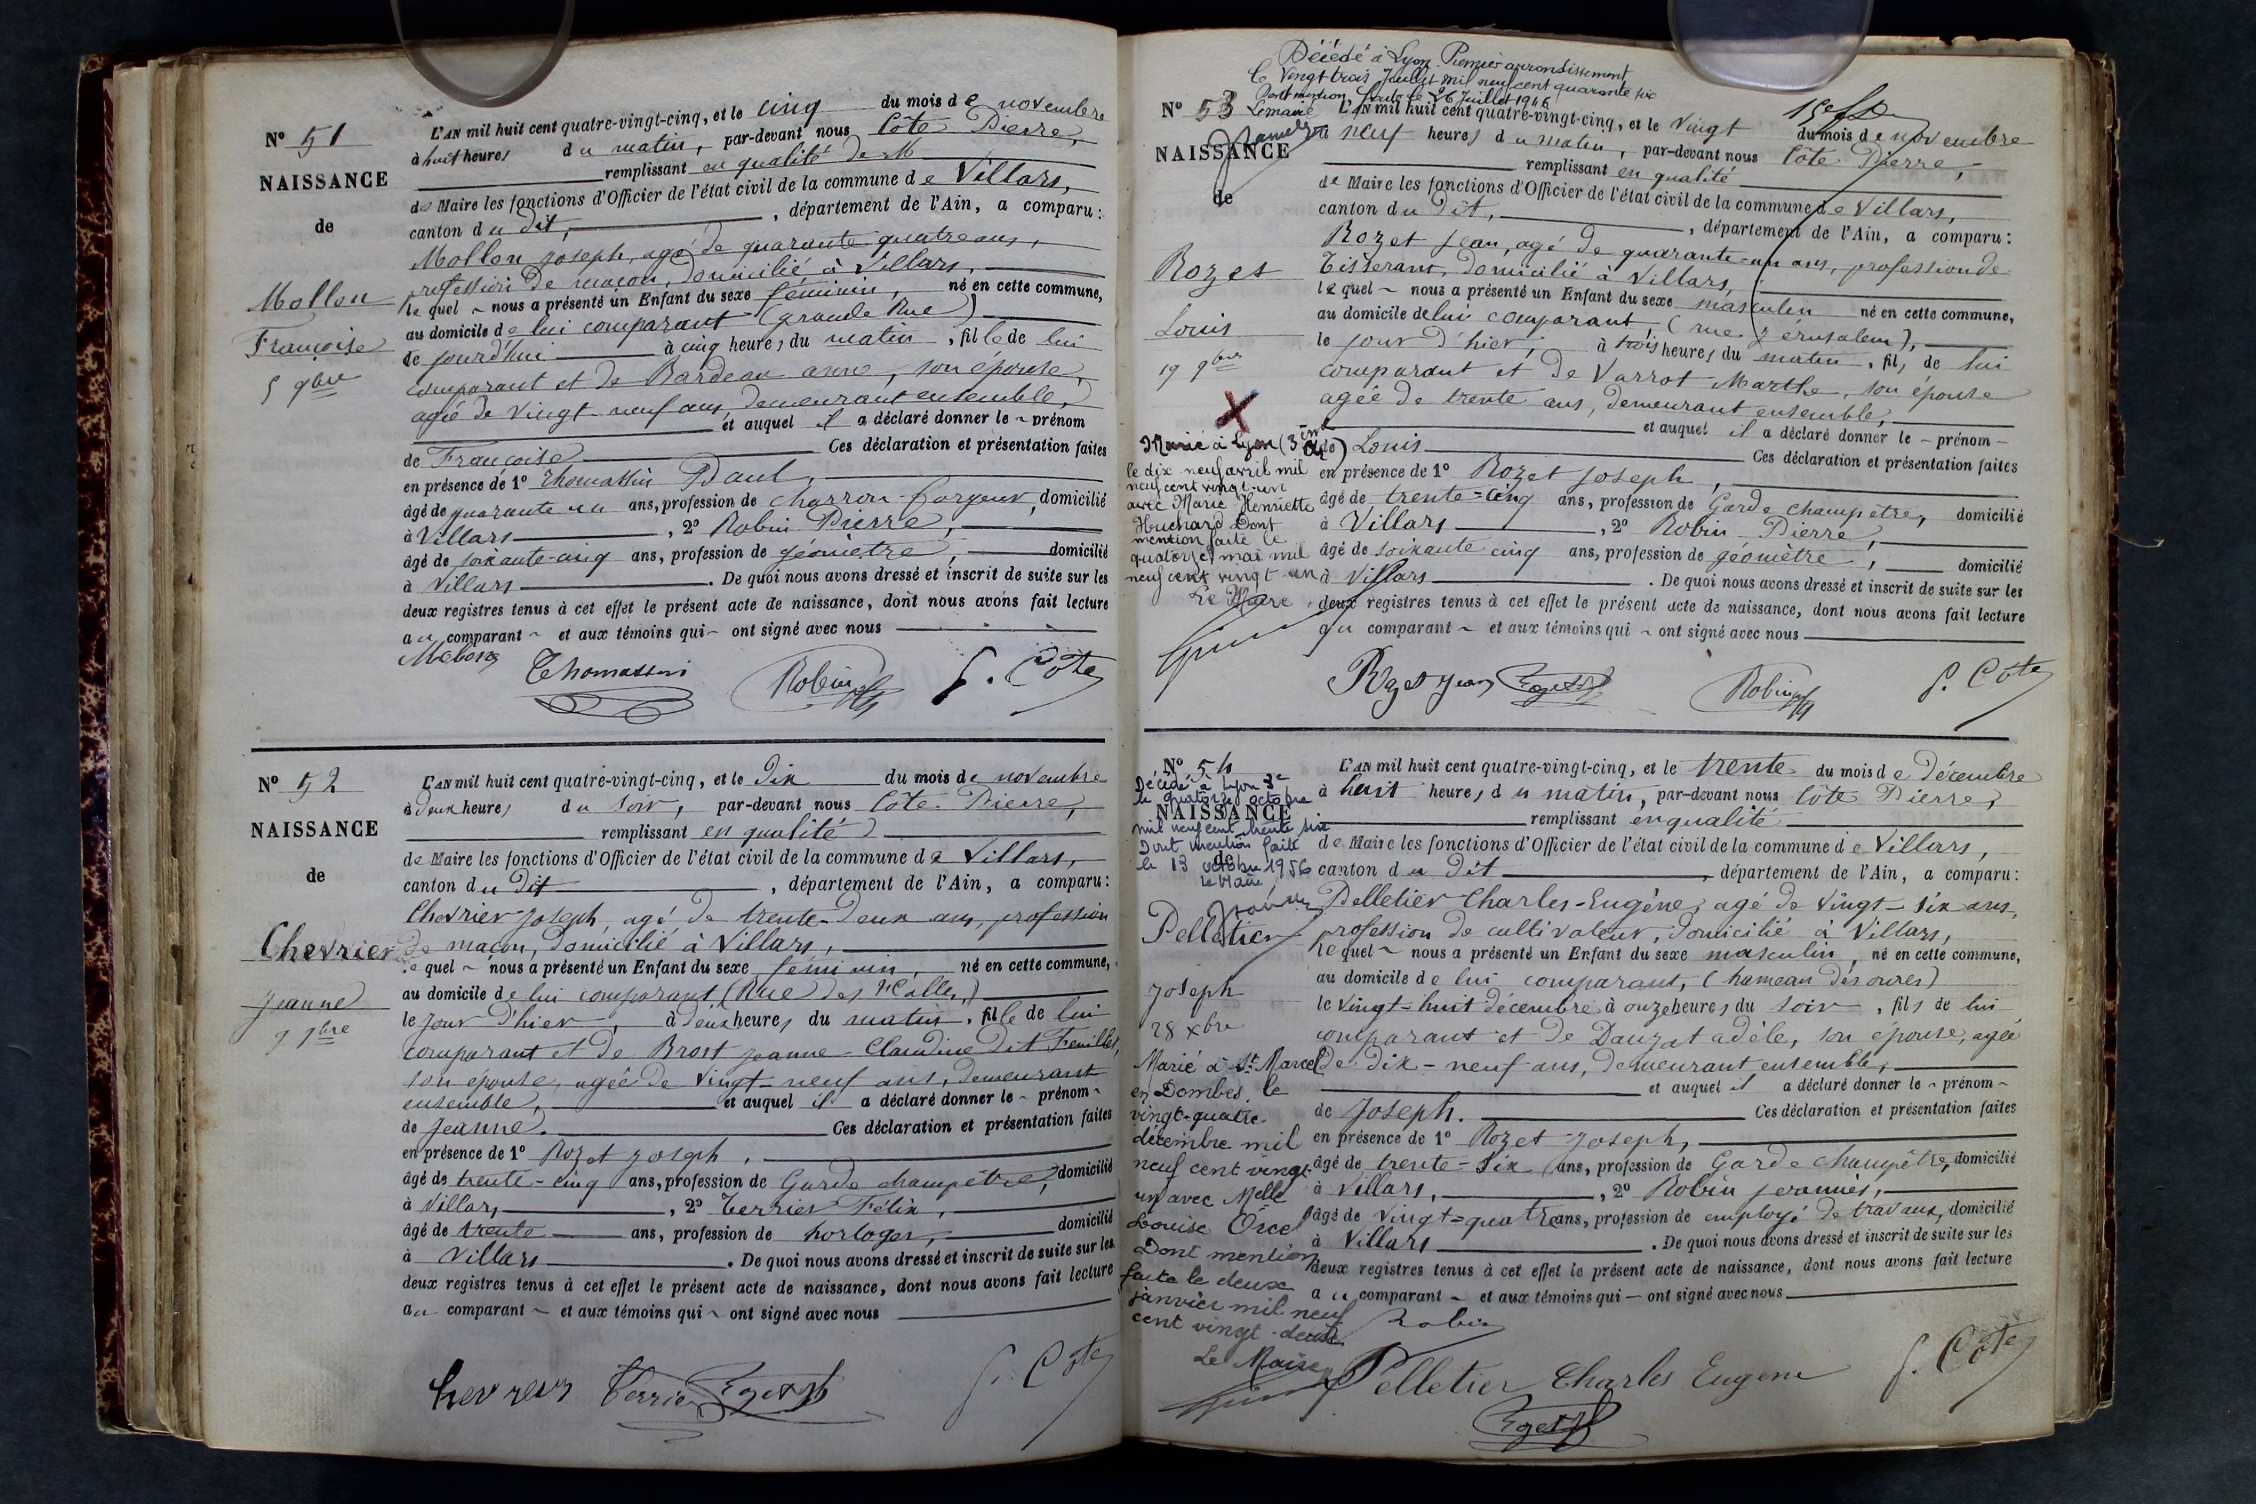 N° 51
NAISSANCE
de
Mollon
Françoise
5 9bre
L'AN mil huit cent quatre-vingt-cinq, et le cinq du mois de novembre
à huit heures du matin, par-devant nous Côte Pierre,
remplissant en qualité de M
de Maire les fonctions d'Officier de l'état civil de la commune de Villars,
canton du dit, département de l'Ain, a comparu:
Mollon Joseph, agé de quarante quatre ans,
profession de maçon, domicilié à Villars,
le quel ~ nous a présenté un Enfant du sexe féminin, né en cette commune,
au domicile de lui comparant (grande Rue)
ce jourd'hui à cinq heures du matin, fille de lui
comparant et de Bardeau son épouse,
agée de vingt-neuf ans, demeurant ensemble,
et auquel il a déclaré donner le ~ prénom
de Françoise Ces déclaration et présentation faites
en présence de 1° Thomassin Paul,
âgé de quarante un ans, profession de charron-forgeur, domicilié
à Villars, 2° Robin Pierre,
âgé de soixante-cinq ans, profession de géomètre, domicilié
à Villars. De quoi nous avons dressé et inscrit de suite sur les
deux registres tenus à cet effet le présent acte de naissance, dont nous avons fait lecture
au comparant ~ et aux témoins qui ~ ont signé avec nous
Thomassin Robin P. Côte
N° 52
NAISSANCE
de
Chevrier
Jeanne
9 9bre
L'AN mil huit cent quatre-vingt-cinq, et le dix du mois de novembre
à deux heures du soir, par-devant nous Côte Pierre,
remplissant en qualité
de Maire les fonctions d'Officier de l'état civil de la commune de Villars,
canton du dit, département de l'Ain, a comparu:
Chevrier Joseph, agé de trente-deux ans, profession
de maçon, domicilié à Villars,
le quel ~ nous a présenté un Enfant du sexe féminin, né en cette commune,
au domicile de lui comparant, (Rue des halles,)
le jour d'hier, à deux heures du matin, fille de lui
comparant et de Brost Jeanne-Claudine dit Feuillet,
son épouse, agée de vingt-neuf ans, demeurant
ensemble, et auquel il a déclaré donner le ~ prénom ~
de Jeanne. Ces déclaration et présentation faites
en présence de 1° Rozet Joseph,
âgé de trente-cinq ans, profession de Garde champêtre, domicilié
à Villars, 2° Terrier Félix,
âgé de trente ans, profession de horloger, domicilié
à Villars. De quoi nous avons dressé et inscrit de suite sur les
deux registres tenus à cet effet le présent acte de naissance, dont nous avons fait lecture
au comparant ~ et aux témoins qui ~ ont signé avec nous
Terrier P. Côte
Décédé à Lyon Premier arrondissement
le vingt trois Juillet mil neuf cent quarante six
Dont mention faite le 26 Juillet 1946
Le maire
N° 53
NAISSANCE
de
Rozet
Louis
19 9bre
Marié à Lyon (3me arrdt)
le dix neuf avril mil
neuf cent vingt-un
avec Marie Henriette
Huchard Dont
mention faite le
quatorze mai mil
neuf cent vingt-un
Le Maire
L'AN mil huit cent quatre-vingt-cinq, et le vingt du mois de novembre
à neuf heures du matin, par-devant nous Côte Pierre,
remplissant en qualité
de Maire les fonctions d'Officier de l'état civil de la commune de Villars,
canton du dit, département de l'Ain, a comparu:
Rozet Jean, agé de quarante-un ans, profession de
Tisserant, domicilié à Villars,
le quel ~ nous a présenté un Enfant du sexe masculin né en cette commune,
au domicile de lui comparant, (rue Jérusalem),
le jour d'hier, à trois heures du matin, fils de lui
comparant et de Varrot Marthe, son épouse
agée de trente ans, demeurant ensemble,
et auquel il a déclaré donner le ~ prénom ~
Louis Ces déclaration et présentation faites
en présence de 1° Rozet Joseph,
âgé de trente-cinq ans, profession de Garde champêtre, domicilié
à Villars, 2° Robin Pierre,
âgé de soixante cinq ans, profession de géomètre, domicilié
à Villars. De quoi nous avons dressé et inscrit de suite sur les
deux registres tenus à cet effet le présent acte de naissance, dont nous avons fait lecture
au comparant ~ et aux témoins qui ~ ont signé avec nous
Rozet Jean Rozet Robin P. Côte
N° 54
Décédé à Lyon 3e
le quatorze octobre
NAISSANCE
mil neuf cent trente six
Dont mention faite
de
le 13 octobre 1956
Le Maire
Pelletier
Joseph
28 Xbre
Marié à St Marcel
en Dombes le
vingt-quatre
décembre mil
neuf cent vingt-
un avec Melle
Louise Orcel
Dont mention
faite le deux
janvier mil neuf
cent vingt-deux
Le Maire
L'AN mil huit cent quatre-vingt-cinq, et le trente du mois de Décembre
à huit heures du matin, par-devant nous Côte Pierre,
remplissant en qualité
de Maire les fonctions d'Officier de l'état civil de la commune de Villars,
canton du dit, département de l'Ain, a comparu:
Pelletier Charles-Eugène, agé de vingt-six ans,
profession de cultivateur, domicilié à Villars,
le quel ~ nous a présenté un Enfant du sexe masculin, né en cette commune,
au domicile de lui comparant, (hameau des oures)
le vingt-huit décembre à onze heures du soir, fils de lui
comparant et de Dauzat adèle, son épouse, agée
de dix-neuf ans, demeurant ensemble,
et auquel il a déclaré donner le ~ prénom ~
de Joseph. Ces déclaration et présentation faites
en présence de 1° Rozet Joseph,
âgé de trente-six ans, profession de Garde champêtre, domicilié
à Villars, 2° Robin
âgé de vingt-quatre ans, profession de employé de travaux, domicilié
à Villars. De quoi nous avons dressé et inscrit de suite sur les
deux registres tenus à cet effet le présent acte de naissance, dont nous avons fait lecture
au comparant ~ et aux témoins qui — ont signé avec nous
Robin
Pelletier Charles Eugene P. Côte
Rozet